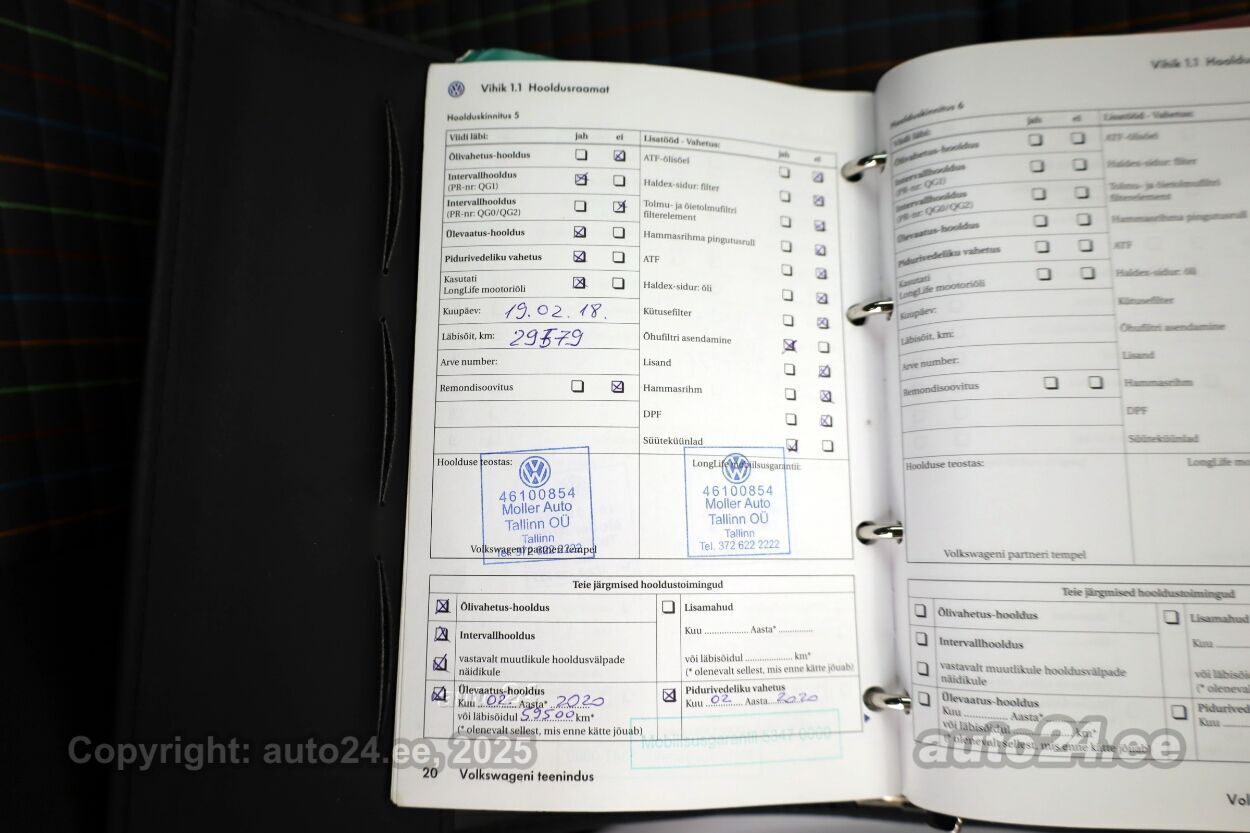 Vihik 1.1 Hooldusraamat
Hoolduskinnitus 5
Viidi läbi: jah ei
Õlivahetus-hooldus
Intervallhooldus
(PR-nr: QG1)
Intervallhooldus
(PR-nr: QG0/QG2)
Ülevaatus-hooldus
Pidurivedeliku vahetus
Kasutati
LongLife mootoriõli
Kuupäev: 19.02.18.
Läbisõit, km: 29579
Arve number:
Remondisoovitus
Lisatööd - Vahetus: jah ei
ATF-õlisõel
Haldex-sidur: filter
Tolmu- ja õietolmufiltri
filterelement
Hammasrihma pingutusrull
ATF
Haldex-sidur: õli
Kütusefilter
Õhufiltri asendamine
Lisand
Hammasrihm
DPF
Süüteküünlad
Hoolduse teostas:
46100854
Moller Auto
Tallinn OÜ
Tallinn
Tel. 372 622 2222
Volkswageni partneri tempel
LongLife mobiilsusgarantii:
46100854
Moller Auto
Tallinn OÜ
Tallinn
Tel. 372 622 2222
Teie järgmised hooldustoimingud
Õlivahetus-hooldus
Intervallhooldus
vastavalt muutlikule hooldusvälpade
näidikule
Ülevaatus-hooldus
Kuu 02 Aasta* 2020
või läbisõidul 59500 km*
(* olenevalt sellest, mis enne kätte jõuab)
Lisamahud
Kuu .................. Aasta* .............
või läbisõidul ................... km*
(* olenevalt sellest, mis enne kätte jõuab)
Pidurivedeliku vahetus
Kuu 02 Aasta 2020
Mobiilsusgarantii 5347 0000
20 Volkswageni teenindus
Vihik 1.1
Hoolduskinnitus 6
Viidi läbi: jah ei
Õlivahetus-hooldus
Intervallhooldus
(PR-nr: QG1)
Intervallhooldus
(PR-nr: QG0/QG2)
Ülevaatus-hooldus
Pidurivedeliku vahetus
Kasutati
LongLife mootoriõli
Kuupäev:
Läbisõit, km:
Arve number:
Remondisoovitus
Lisatööd - Vahetus:
ATF-õlisõel
Haldex-sidur: filter
Tolmu- ja õietolmufiltri
filterelement
Hammasrihma pingutusrull
ATF
Haldex-sidur: õli
Kütusefilter
Õhufiltri asendamine
Lisand
Hammasrihm
DPF
Süüteküünlad
Hoolduse teostas:
LongLife
Volkswageni partneri tempel
Teie järgmised hooldustoimingud
Õlivahetus-hooldus
Intervallhooldus
vastavalt muutlikule hooldusvälpade
näidikule
Ülevaatus-hooldus
Kuu .............. Aasta*
või läbisõidul km*
(* olenevalt sellest, mis enne kätte jõuab)
Lisamahud
Kuu
Copyright: auto24.ee, 2025
auto24.ee